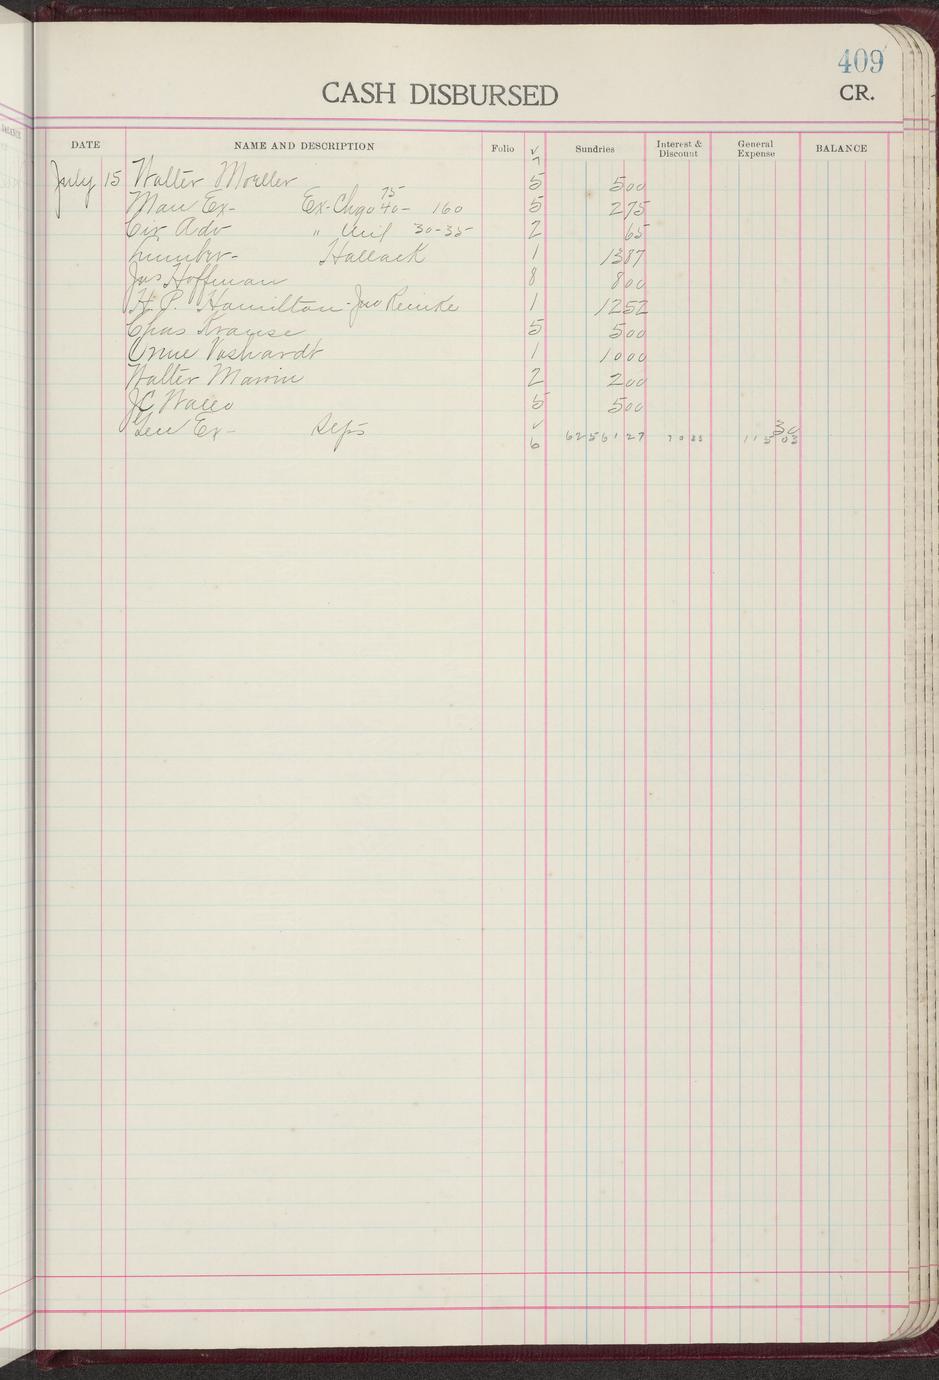 409
CASH DISBURSED
CR.
DATE NAME AND DESCRIPTION Folio √ Sundries Interest & Discount General Expense BALANCE
7
July 15 Walter Moeller 5 500
75
Man Ex- Ex-Chgo 40- 160 5 275
Cir Adv " Mil 30-35- 2 65
Lumber- Hallack 1 1387
Jas Hoffman 8 800
H.P. Hamilton-Jno Reinke 1 1252
Chas Krause 5 500
Voshardt 1 1000
Walter 2 200
JC 5 500
Gen Ex- √ 30
6 62561 27 70 88 115 03